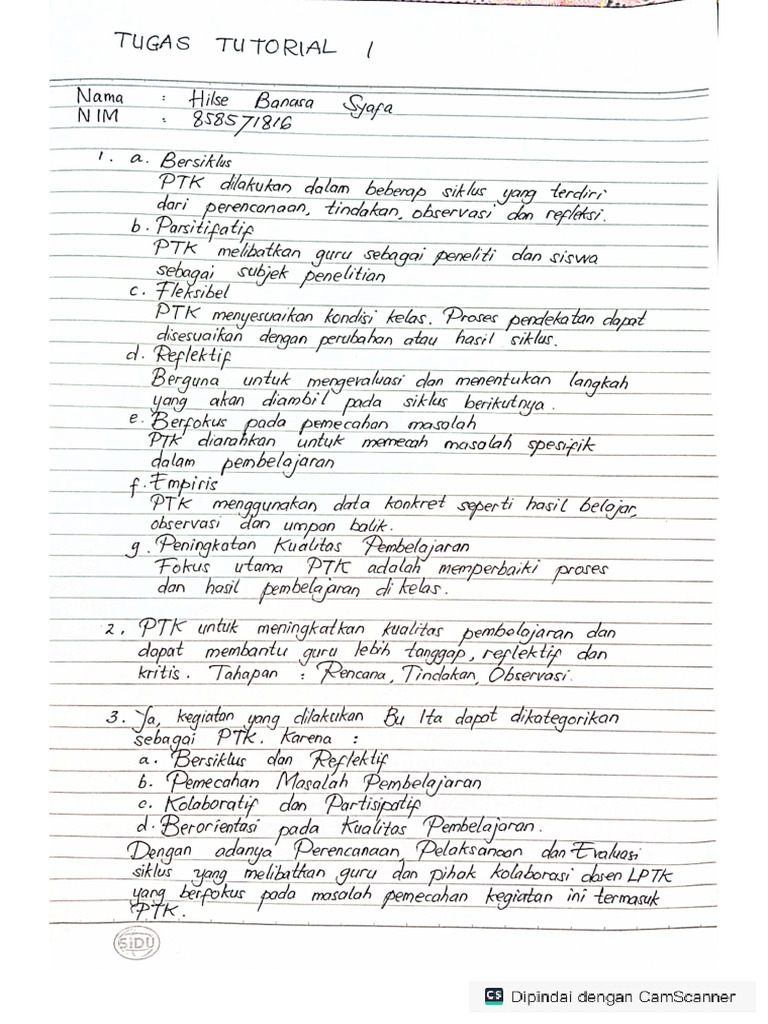 TUGAS TUTORIAL 1
Nama : Hilse Banasa Syafa
NIM : 858571816
1. a. Bersiklus
PTK dilakukan dalam beberap siklus yang terdiri
dari perencanaan, tindakan, observasi dan refleksi.
b. Parsitifatif
PTK melibatkan guru sebagai peneliti dan siswa
sebagai subjek penelitian
c. Fleksibel
PTK menyesuaikan kondisi kelas. Proses pendekatan dapat
disesuaikan dengan perubahan atau hasil siklus.
d. Reflektif
Berguna untuk mengevaluasi dan menentukan langkah
yang akan diambil pada siklus berikutnya.
e. Berfokus pada pemecahan masalah
PTK diarahkan untuk memecah masalah spesifik
dalam pembelajaran
f. Empiris
PTK menggunakan data konkret seperti hasil belajar,
observasi dan umpan balik.
g. Peningkatan Kualitas Pembelajaran
Fokus utama PTK adalah memperbaiki proses
dan hasil pembelajaran di kelas.
2. PTK untuk meningkatkan kualitas pembelajaran dan
dapat membantu guru lebih tanggap, reflektif dan
kritis. Tahapan : Rencana, Tindakan, Observasi.
3. Ya, kegiatan yang dilakukan Bu Ita dapat dikategorikan
sebagai PTK. Karena :
a. Bersiklus dan Reflektif
b. Pemecahan Masalah Pembelajaran
c. Kolaboratif dan Partisipatif
d. Berorientasi pada Kualitas Pembelajaran.
Dengan adanya Perencanaan, Pelaksanaan dan Evaluasi
siklus yang melibatkan guru dan pihak kolaborasi dosen LPTK
yang berfokus pada masalah pemecahan kegiatan ini termasuk
PTK.
SiDU
CS Dipindai dengan CamScanner